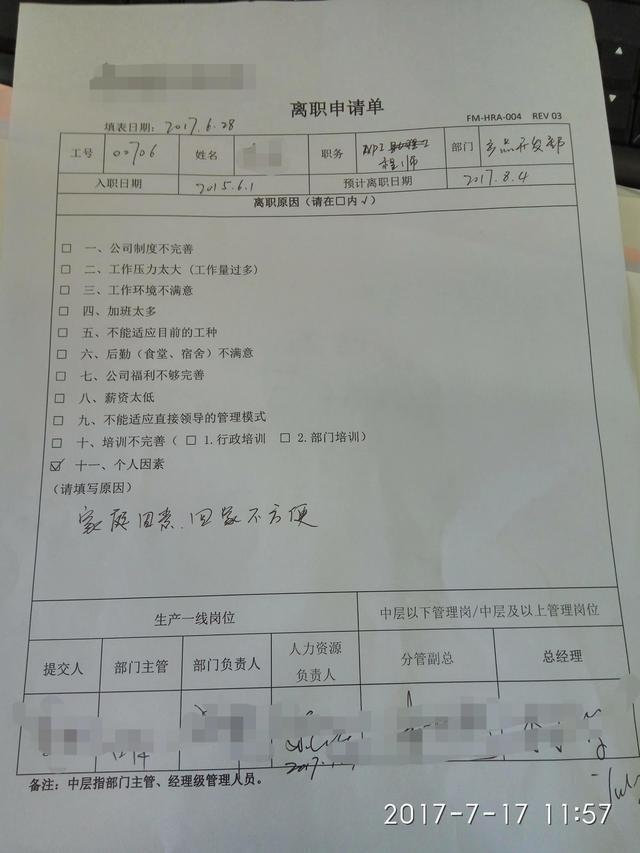 离职申请单
填表日期：2017.6.28 FM-HRA-004 REV 03
工号 00706 姓名 职务 NPI 程师 部门 产品开发部
入职日期 2015.6.1 预计离职日期 2017.8.4
离职原因（请在□内√）
□ 一、公司制度不完善
□ 二、工作压力太大（工作量过多）
□ 三、工作环境不满意
□ 四、加班太多
□ 五、不能适应目前的工种
□ 六、后勤（食堂、宿舍）不满意
□ 七、公司福利不够完善
□ 八、薪资太低
□ 九、不能适应直接领导的管理模式
□ 十、培训不完善（ □ 1.行政培训 □ 2.部门培训）
☑ 十一、个人因素
（请填写原因）
家庭因素.回家不方便
生产一线岗位 中层以下管理岗/中层及以上管理岗位
提交人 部门主管 部门负责人 人力资源负责人 分管副总 总经理
备注：中层指部门主管、经理级管理人员。
2017-7-17 11:57